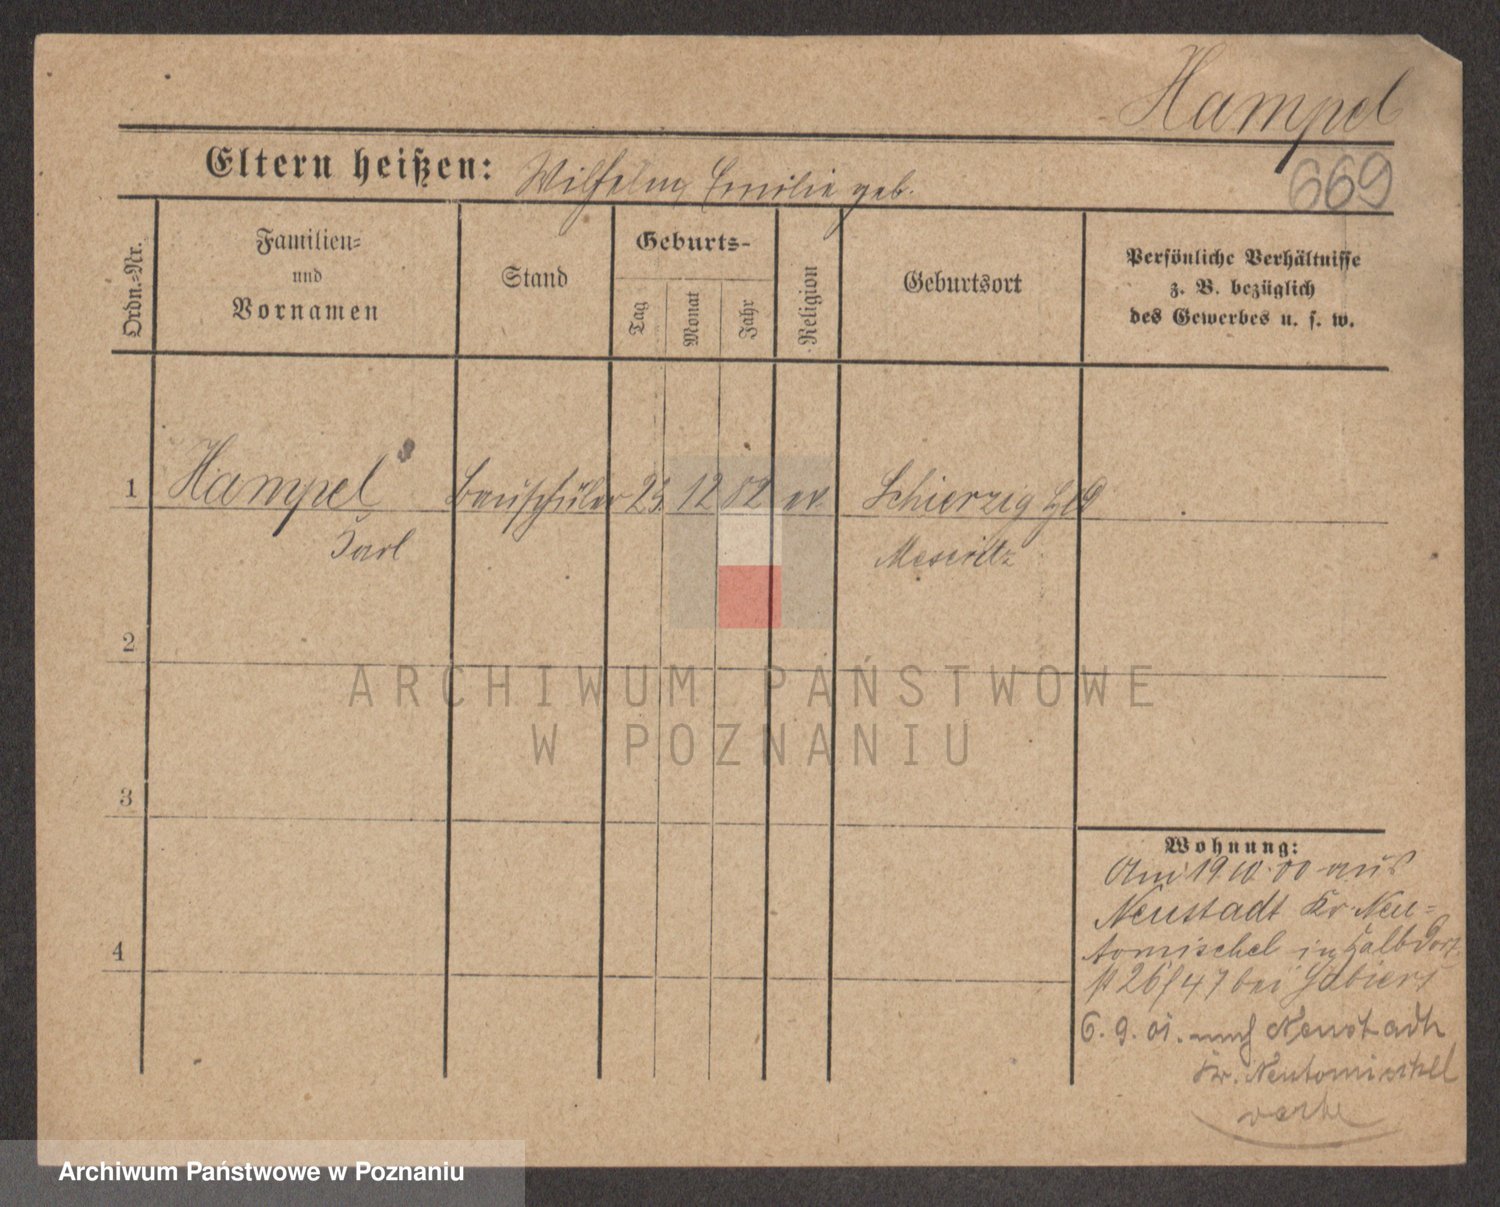 Hampel
669
Eltern heißen: Wilhelm, Emilie geb.
Ordn.-Nr.
Familien-
und
Vornamen
Stand
Geburts-
Tag
Monat
Jahr
Religion
Geburtsort
Persönliche Verhältnisse
z. B. bezüglich
des Gewerbes u. s. w.
1 Hampel Bauschüler 23 12 82 ev. Schierzig
Karl Meseritz
2
3
4
Wohnung:
Am 19 10. 00 aus
Neustadt Kr. Neu-
tomischel in Halbdorf
26/47 bei
6. 9. 01. nach Neustadt
Kr. Neutomischel
ARCHIWUM PAŃSTWOWE
W POZNANIU
Archiwum Państwowe w Poznaniu